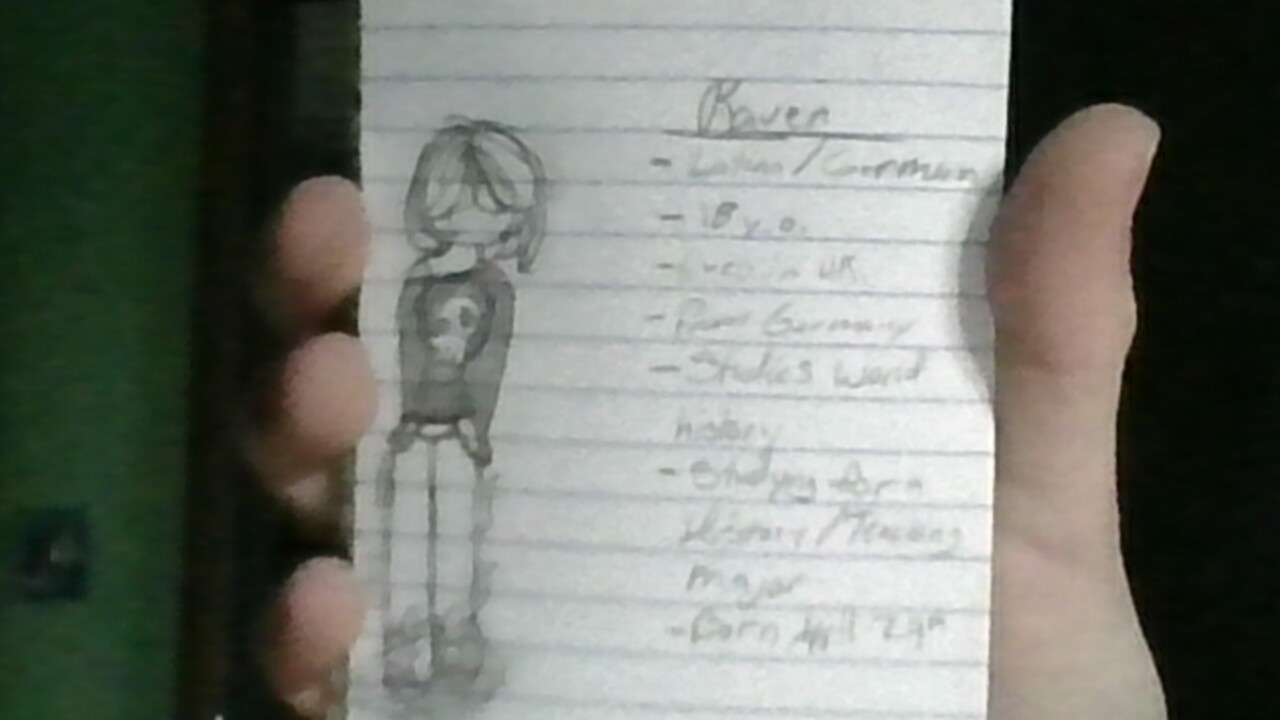 Raven
- Latian/German
- 18 y.o.
- Lives in UK
- From Germany
- Studies World
history
- Studying for a
History/Teaching
major
- Born April 24th